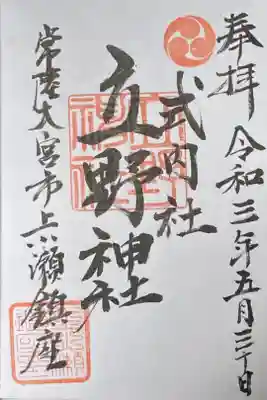 奉拝 令和三年五月三十日
式内社
立野神社
常陸大宮市上小瀬鎮座